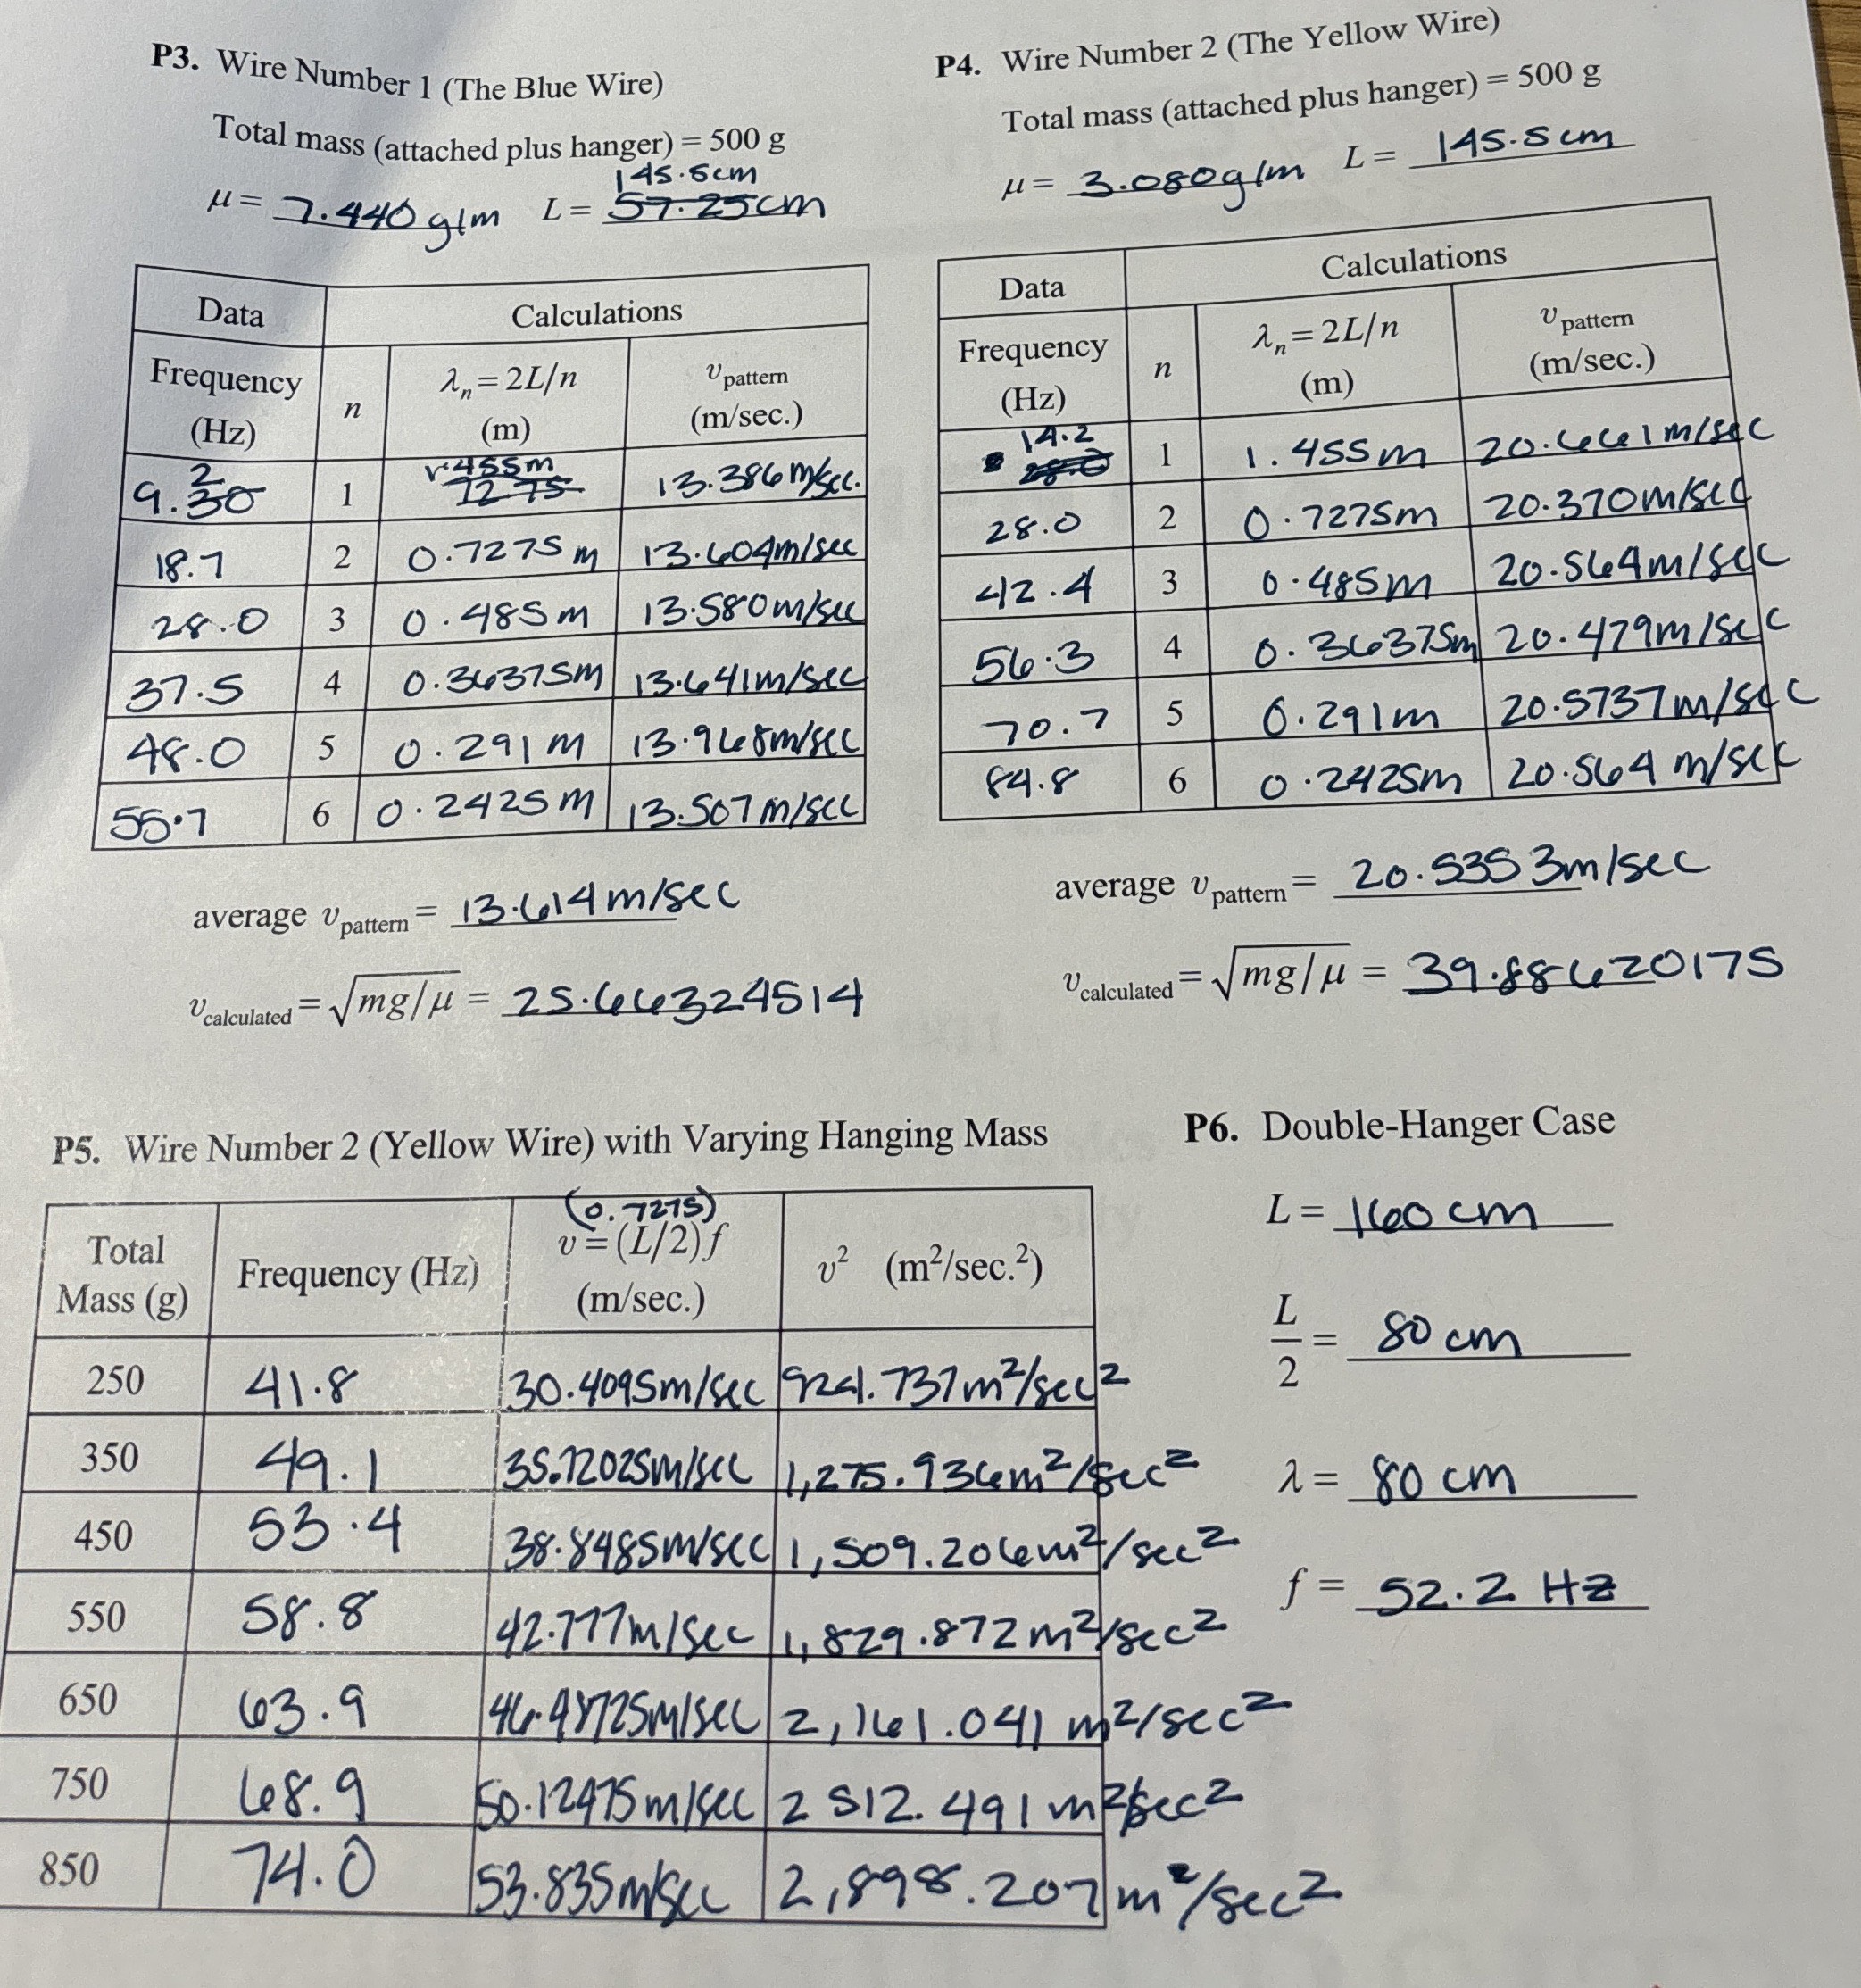 P3. Wire Number 1 (The Blue Wire)
Total mass (attached plus hanger) = 500 g
145.5cm
μ = 7.440 g/m L = 57.25cm
Data Calculations
Frequency (Hz) n λn = 2L/n (m) υpattern (m/sec.)
9.30 2 1 1.455m 72.75 13.386m/sec.
18.7 2 0.7275m 13.604m/sec
28.0 3 0.485m 13.580m/sec
37.5 4 0.36375m 13.641m/sec
48.0 5 0.291m 13.968m/sec
55.7 6 0.2425m 13.507m/sec
average υpattern = 13.614m/sec
υcalculated = √mg/μ = 25.66324514
P4. Wire Number 2 (The Yellow Wire)
Total mass (attached plus hanger) = 500 g
μ = 3.080g/m L = 145.5cm
Data Calculations
Frequency (Hz) n λn = 2L/n (m) υpattern (m/sec.)
14.2 28.0 1 1.455m 20.661m/sec
28.0 2 0.7275m 20.370m/sec
42.4 3 0.485m 20.564m/sec
56.3 4 0.36375m 20.479m/sec
70.7 5 0.291m 20.5737m/sec
84.8 6 0.2425m 20.564m/sec
average υpattern = 20.5353m/sec
υcalculated = √mg/μ = 39.88620175
P5. Wire Number 2 (Yellow Wire) with Varying Hanging Mass
(0.7275)
Total Mass (g) Frequency (Hz) υ = (L/2)f (m/sec.) υ² (m²/sec.²)
250 41.8 30.4095m/sec 924.737m²/sec²
350 49.1 35.72025m/sec 1,275.936m²/sec²
450 53.4 38.8485m/sec 1,509.206m²/sec²
550 58.8 42.777m/sec 1,829.872m²/sec²
650 63.9 46.48725m/sec 2,161.041 m²/sec²
750 68.9 50.12475m/sec 2 512.491 m²/sec²
850 74.0 53.835m/sec 2,898.207 m²/sec²
P6. Double-Hanger Case
L = 160 cm
L/2 = 80 cm
λ = 80 cm
f = 52.2 Hz